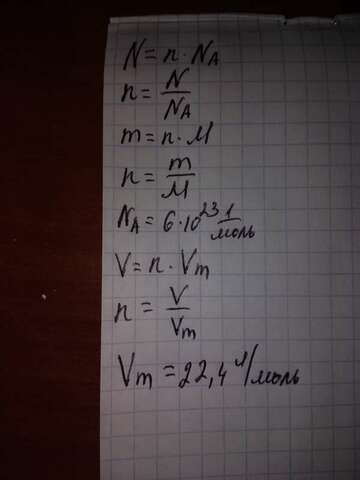 N = n · NA
n = N/NA
m = n · M
n = m/M
NA = 6 · 10²³ 1/моль
V = n · Vm
n = V/Vm
Vm = 22,4 л/моль